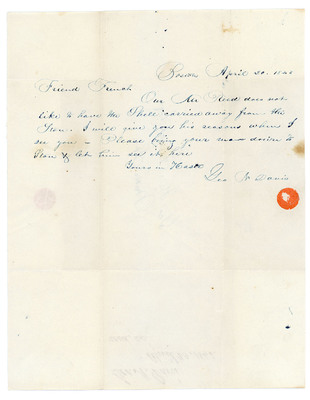 Boston April 20. 18
Friend French
Our Mr Reed does not
like to have the Shell carried away from the
Store. I will give you his reasons when I
see you – Please bring your man down to
Store & let him see it here
Yours in Haste
Geo N Davis